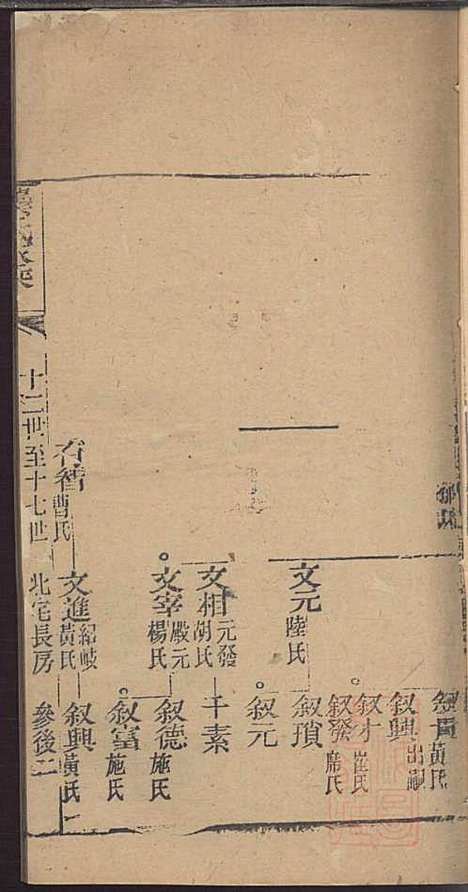 黃氏
叙興 出嗣
叙才 崔氏
叙發 席氏
文元 陸氏
叙瑣
叙元
文相 元發 胡氏
千素
文宰 殿元 楊氏
叙德 施氏
叙富 施氏
春榗 曹氏
文進 紀岐 黃氏
叙興 黃氏
十二世至十七世 北宅長房 參後二